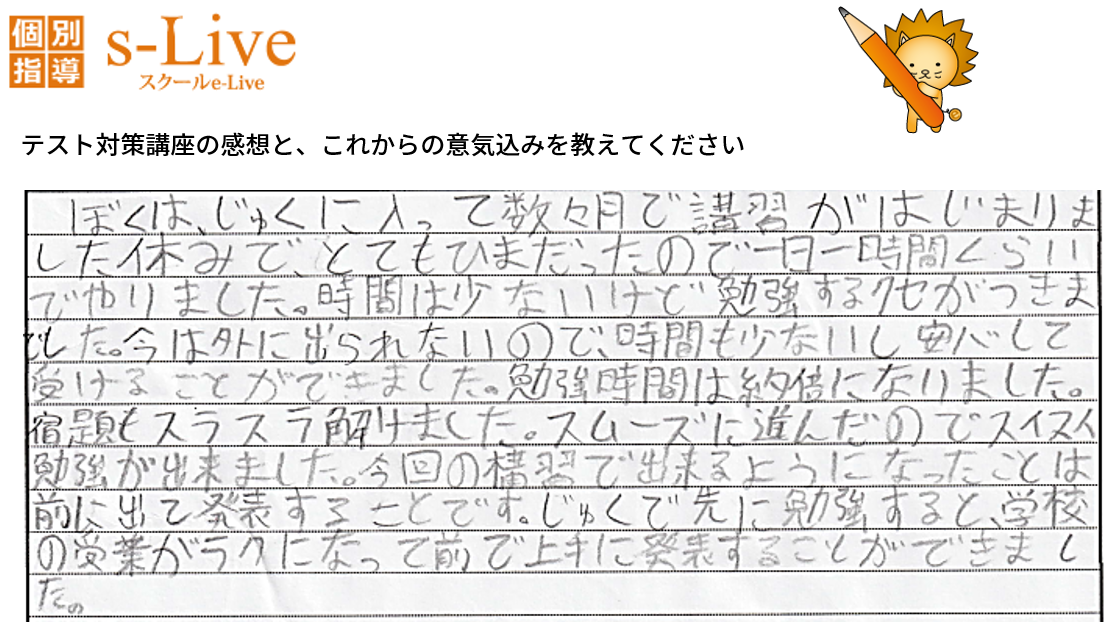 個別
指導
s-Live
スクールe-Live
テスト対策講座の感想と、これからの意気込みを教えてください
ぼくは、じゅくに入って数々月で講習がはじまりま
した休みで、とてもひまだったので一日一時間くらい
でやりました。時間は少ないけど勉強するクセがつきま
でした。今は外に出られないので、時間も少ないし安心して
受けることができました。勉強時間は約倍になりました。
宿題もスラスラ解けました。スムーズに進んだのでスイスイ
勉強が出来ました。今回の構習で出来るようになったことは
前に出て発表することです。じゅくで先に勉強すると、学校
の受業がラクになって前で上手に発表することができまし
た。